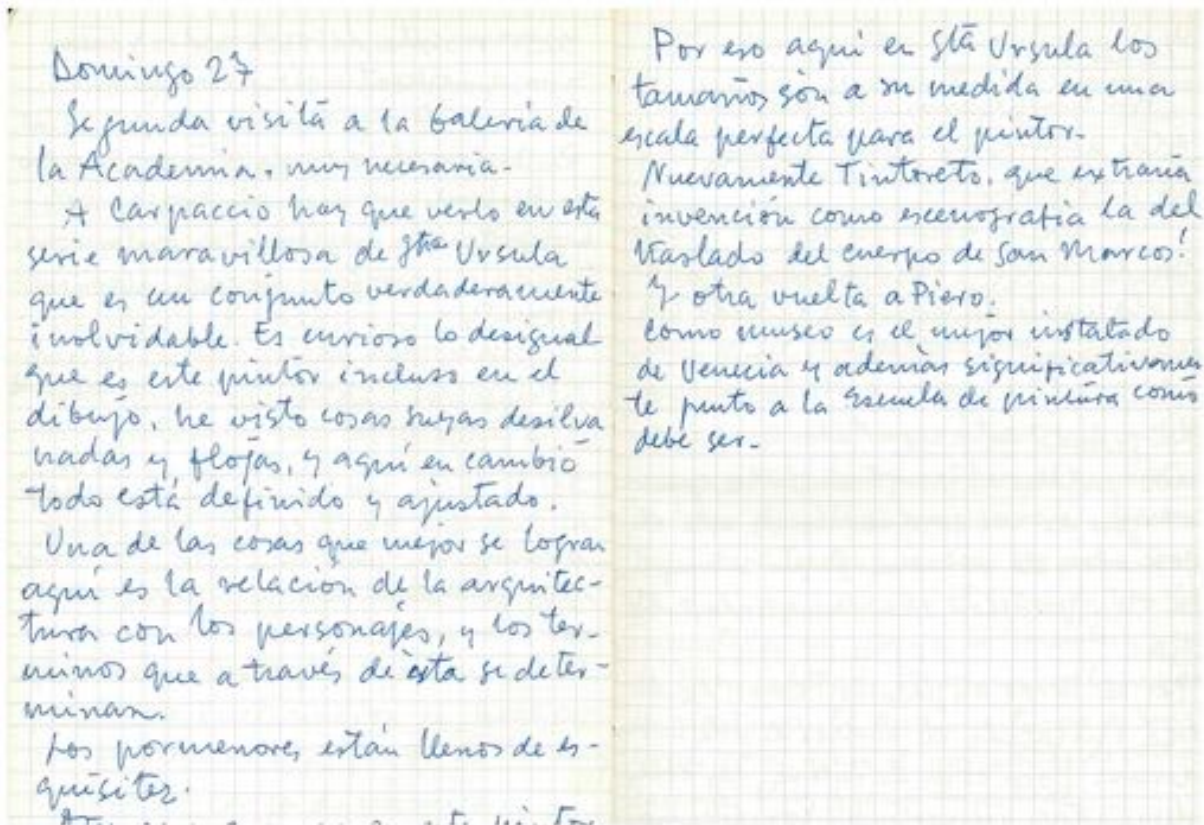 Domingo 27
Segunda visita a la Galeria de
la Academia. muy necesaria.
A Carpaccio hay que verlo en esta
serie maravillosa de Sta Ursula
que es un conjunto verdaderamente
inolvidable. Es curioso lo desigual
que es este pintor incluso en el
dibujo, he visto cosas suyas desilva
nadas y flojas, y aquí en cambio
todo está definido y ajustado.
Una de las cosas que mejor se logran
aquí es la relación de la arquitec-
tura con los personajes, y los ter-
minos que a través de ésta se deter-
minan.
Los pormenores están llenos de es-
quisitez.
este pintor
Por eso aquí en Sta Ursula los
tamaños son a su medida en una
escala perfecta para el pintor.
Nuevamente Tintoreto, que extraña
invención como escenografia la del
traslado del cuerpo de San Marcos!
Y otra vuelta a Piero.
Como museo es el mejor instalado
de Venecia y además significativamen
te junto a la Escuela de pintura como
debe ser.